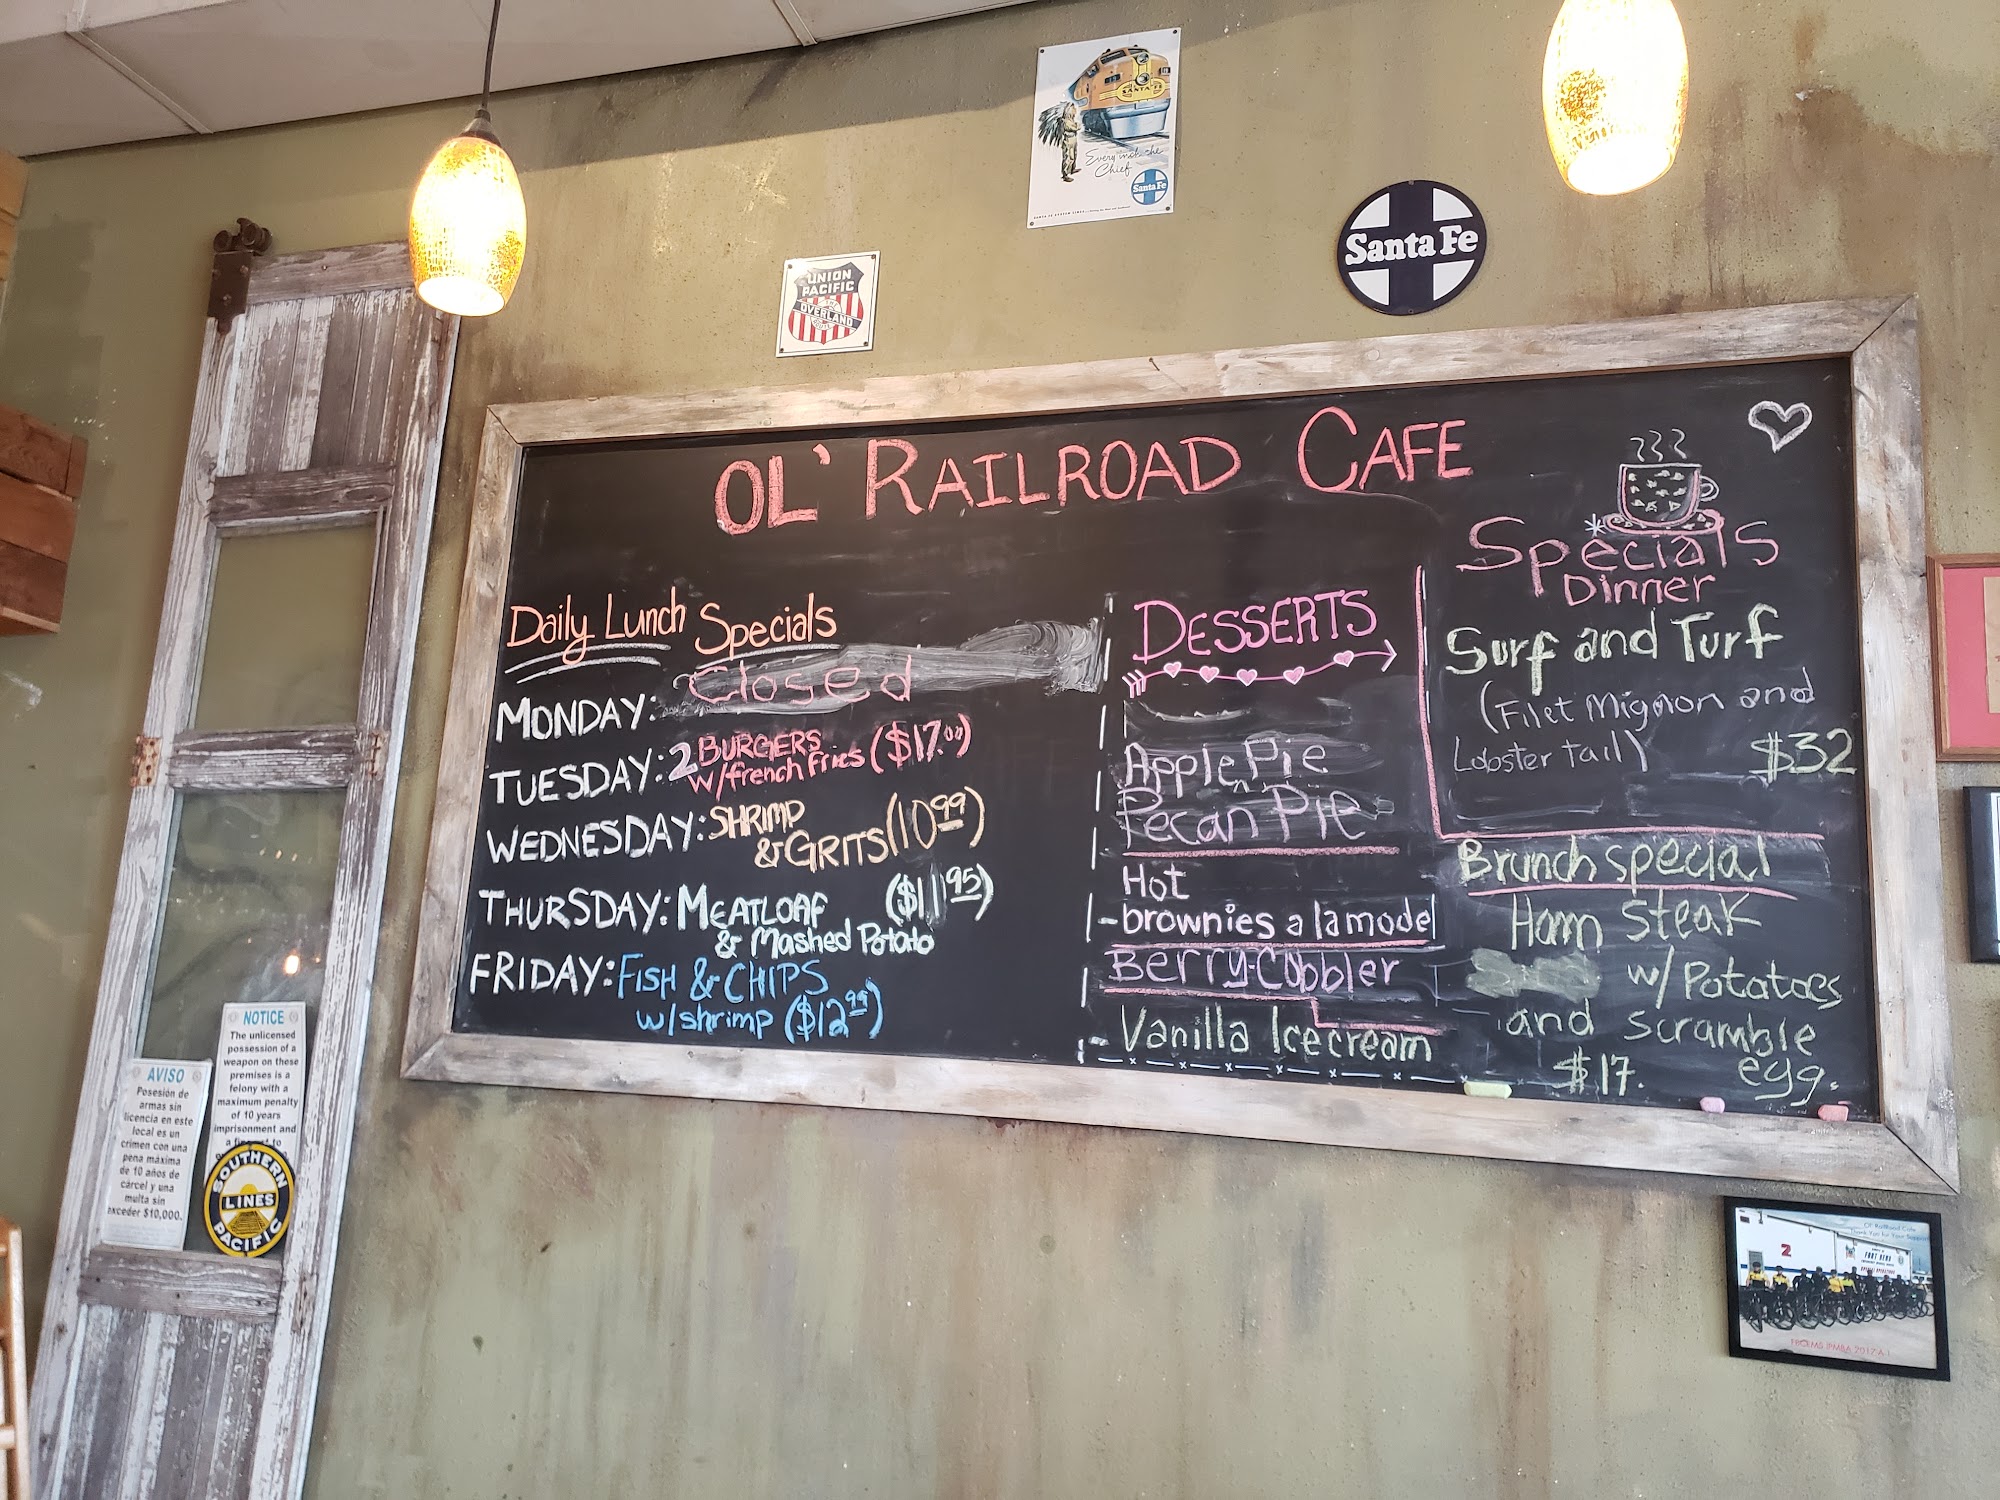 SANTA FE
Every inch the
Chief
Santa Fe
Santa Fe
UNION
PACIFIC
THE
OVERLAND
ROUTE
OL' RAILROAD CAFE
Daily Lunch Specials
MONDAY: Closed
TUESDAY: 2 BURGERS
w/french fries ($17.00)
WEDNESDAY: SHRIMP
& GRITS (10.99)
THURSDAY: MEATLOAF ($11.95)
& Mashed Potato
FRIDAY: FISH & CHIPS
w/shrimp ($12.99)
DESSERTS
Apple Pie
Pecan Pie
Hot
-brownies a lamode
Berry-Cobbler
Vanilla Icecream
Specials
Dinner
Surf and Turf
(Filet Mignon and
Lobster tail) $32
Brunch special
Ham Steak
w/ Potatoes
and scramble
$17. egg.
NOTICE
The unlicensed
possession of a
weapon on these
premises is a
felony with a
maximum penalty
of 10 years
imprisonment and
AVISO
Posesión de
armas sin
licencia en este
local es un
crimen con una
pena máxima
de 10 años de
cárcel y una
multa sin
exceder $10,000.
SOUTHERN
LINES
PACIFIC
Ol' Railroad Cafe
Thank You for Your Support
2
FORT BEND